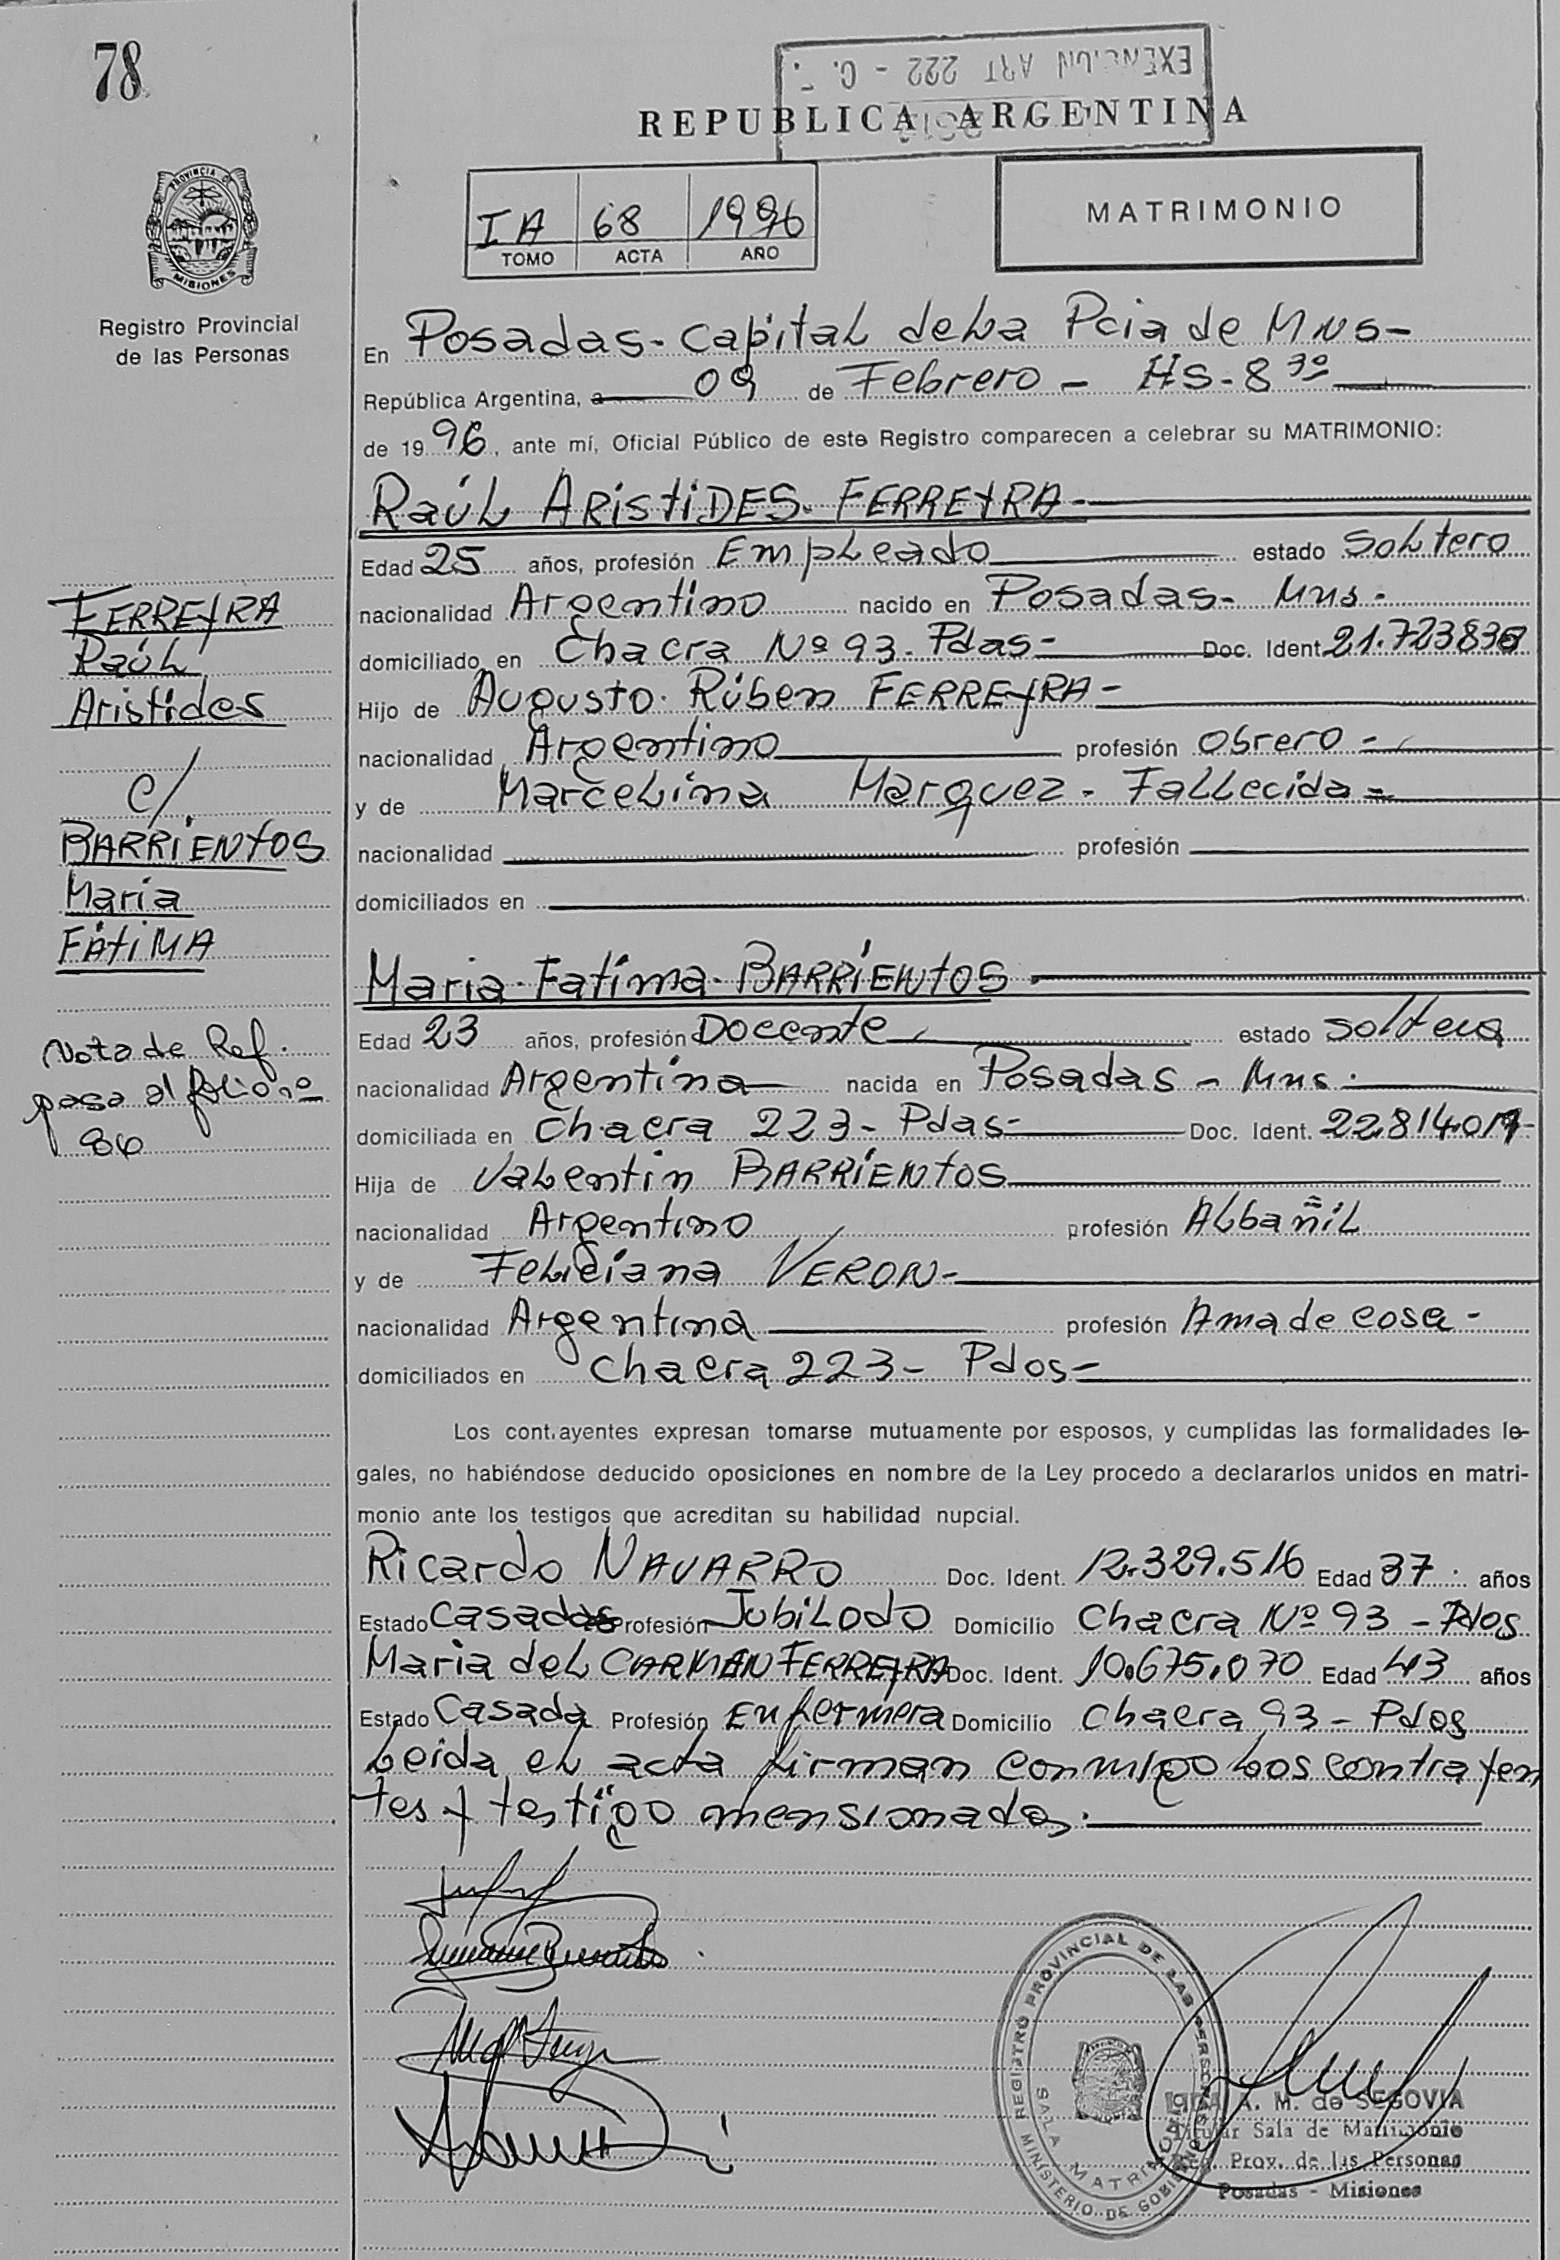 78
EXENCION ART 222 - C.
REPUBLICA ARGENTINA
PROVINCIA DE
MISIONES
Registro Provincial
de las Personas
IA 68 1996
TOMO ACTA AÑO
MATRIMONIO
En Posadas - Capital de La Pcia de Mns -
República Argentina, a 09 de Febrero - HS - 8 30
de 19 96, ante mí, Oficial Público de este Registro comparecen a celebrar su MATRIMONIO:
Raúl Aristides FERREYRA -
Edad 25 años, profesión Empleado estado Soltero
nacionalidad Argentino nacido en Posadas - Mns -
domiciliado en Chacra Nº 93 - Pdas - Doc. Ident.
Hijo de Augusto Rúben FERREYRA -
nacionalidad Argentino profesión Obrero -
y de Marcelina Marquez - Fallecida -
nacionalidad profesión
domiciliados en
Maria Fatima BARRIENTOS
Edad 23 años, profesión Docente estado soltera
nacionalidad Argentina nacida en Posadas - Mns -
domiciliada en Chacra 223 - Pdas - Doc. Ident.
Hija de Valentin BARRIENTOS
nacionalidad Argentino profesión Albañil
y de Feliciana VERON -
nacionalidad Argentina profesión Ama de casa -
domiciliados en Chacra 223 - Pdas -
FERREYRA
Raúl
Aristides
c/.
BARRIENTOS
Maria
FÁTIMA
Nota de Ref.
pasa al folio nº
Los contrayentes expresan tomarse mutuamente por esposos, y cumplidas las formalidades le-
gales, no habiéndose deducido oposiciones en nombre de la Ley procedo a declararlos unidos en matri-
monio ante los testigos que acreditan su habilidad nupcial.
Ricardo NAVARRO Doc. Ident. 12.329.516 Edad 37 años
Estado Casado Profesión Jubilado Domicilio Chacra Nº 93 - Pdas
Maria del CARMEN FERREYRA Doc. Ident. 10.675.070 Edad 43 años
Estado Casada Profesión Enfermera Domicilio Chacra 93 - Pdas
Leida el acta firman conmigo los contrayen
tes y testigo mensionados.
REGISTRO PROVINCIAL DE LAS PERSONAS
MINISTERIO DE GOBIERNO
SALA MATRIMONIO
A. M. de SEGOVIA
Titular Sala de Matrimonio
Reg. Prov. de las Personas
Posadas - Misiones